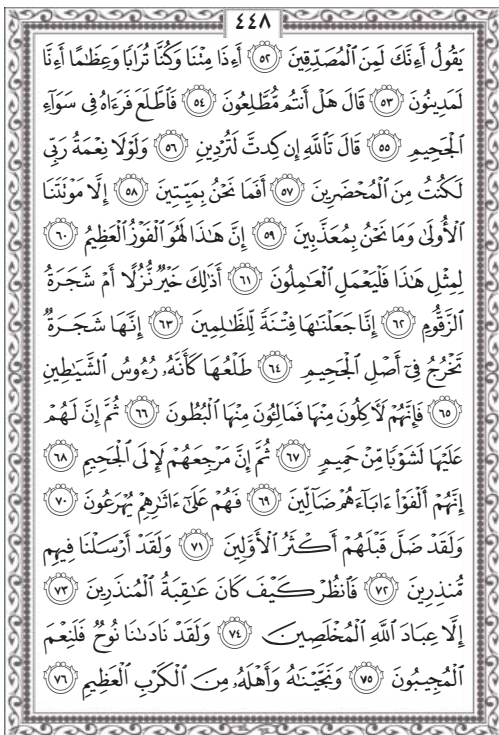 ٤٤٨
يَقُولُ أَءِنَّكَ لَمِنَ ٱلْمُصَدِّقِينَ ٥٢ أَءِذَا مِتْنَا وَكُنَّا تُرَابًا وَعِظَٰمًا أَءِنَّا
لَمَدِينُونَ ٥٣ قَالَ هَلْ أَنتُم مُّطَّلِعُونَ ٥٤ فَٱطَّلَعَ فَرَءَاهُ فِى سَوَآءِ
ٱلْجَحِيمِ ٥٥ قَالَ تَٱللَّهِ إِن كِدتَّ لَتُرْدِينِ ٥٦ وَلَوْلَا نِعْمَةُ رَبِّى
لَكُنتُ مِنَ ٱلْمُحْضَرِينَ ٥٧ أَفَمَا نَحْنُ بِمَيِّتِينَ ٥٨ إِلَّا مَوْتَتَنَا
ٱلْأُولَىٰ وَمَا نَحْنُ بِمُعَذَّبِينَ ٥٩ إِنَّ هَٰذَا لَهُوَ ٱلْفَوْزُ ٱلْعَظِيمُ ٦٠
لِمِثْلِ هَٰذَا فَلْيَعْمَلِ ٱلْعَٰمِلُونَ ٦١ أَذَٰلِكَ خَيْرٌ نُّزُلًا أَمْ شَجَرَةُ
ٱلزَّقُّومِ ٦٢ إِنَّا جَعَلْنَٰهَا فِتْنَةً لِّلظَّٰلِمِينَ ٦٣ إِنَّهَا شَجَرَةٌ
تَخْرُجُ فِىٓ أَصْلِ ٱلْجَحِيمِ ٦٤ طَلْعُهَا كَأَنَّهُۥ رُءُوسُ ٱلشَّيَٰطِينِ
٦٥ فَإِنَّهُمْ لَءَاكِلُونَ مِنْهَا فَمَالِـُٔونَ مِنْهَا ٱلْبُطُونَ ٦٦ ثُمَّ إِنَّ لَهُمْ
عَلَيْهَا لَشَوْبًا مِّنْ حَمِيمٍ ٦٧ ثُمَّ إِنَّ مَرْجِعَهُمْ لَإِلَى ٱلْجَحِيمِ ٦٨
إِنَّهُمْ أَلْفَوْا۟ ءَابَآءَهُمْ ضَآلِّينَ ٦٩ فَهُمْ عَلَىٰٓ ءَاثَٰرِهِمْ يُهْرَعُونَ ٧٠
وَلَقَدْ ضَلَّ قَبْلَهُمْ أَكْثَرُ ٱلْأَوَّلِينَ ٧١ وَلَقَدْ أَرْسَلْنَا فِيهِم
مُّنذِرِينَ ٧٢ فَٱنظُرْ كَيْفَ كَانَ عَٰقِبَةُ ٱلْمُنذَرِينَ ٧٣
إِلَّا عِبَادَ ٱللَّهِ ٱلْمُخْلَصِينَ ٧٤ وَلَقَدْ نَادَىٰنَا نُوحٌ فَلَنِعْمَ
ٱلْمُجِيبُونَ ٧٥ وَنَجَّيْنَٰهُ وَأَهْلَهُۥ مِنَ ٱلْكَرْبِ ٱلْعَظِيمِ ٧٦